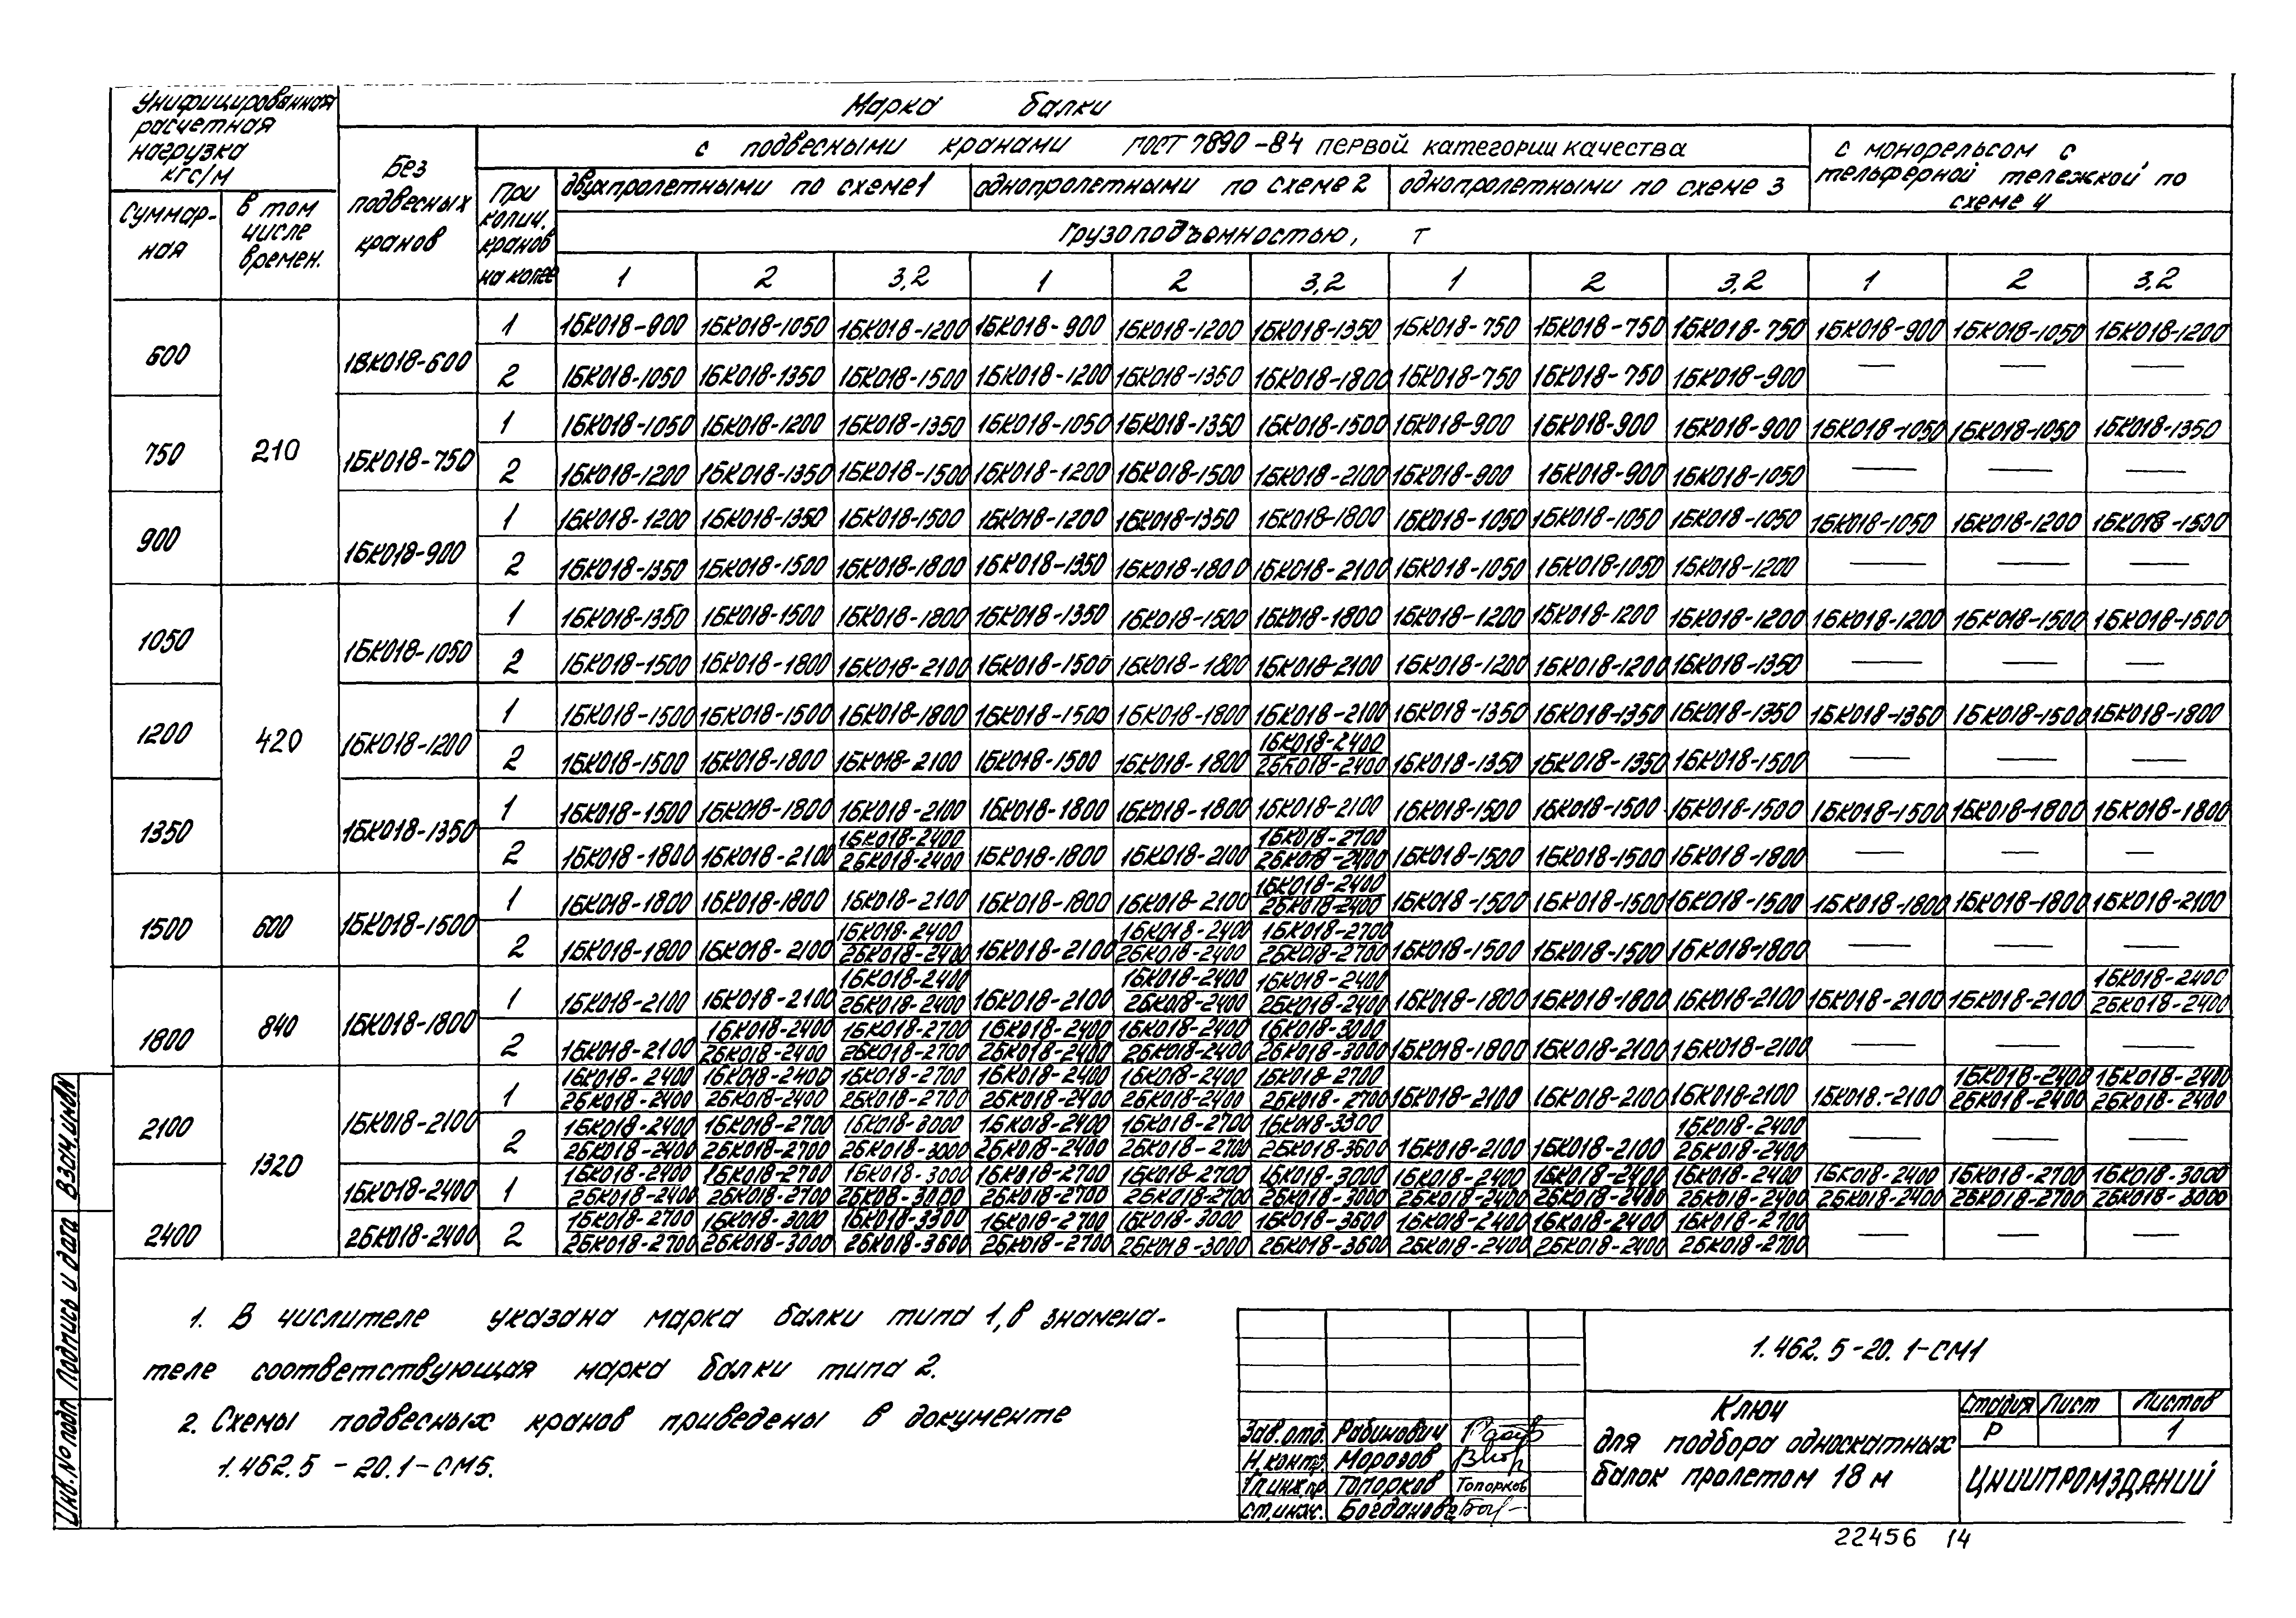 Унифицированная
расчетная
нагрузка
кгс/м
Марка балки
Без
подвесных
кранов
с подвесными кранами ГОСТ 7890-84 первой категории качества
с монорельсом с
тельферной тележкой по
схеме 4
Суммар-
ная
в том
числе
времен.
При
колич.
кранов
на колее
двухпролетными по схеме 1 однопролетными по схеме 2 однопролетными по схеме 3
Грузоподъемностью, т
1 2 3,2 1 2 3,2 1 2 3,2 1 2 3,2
600 210 1БК018-600
1 1БК018-900 1БК018-1050 1БК018-1200 1БК018-900 1БК018-1200 1БК018-1350 1БК018-750 1БК018-750 1БК018-750 1БК018-900 1БК018-1050 1БК018-1200
2 1БК018-1050 1БК018-1350 1БК018-1500 1БК018-1200 1БК018-1350 1БК018-1800 1БК018-750 1БК018-750 1БК018-900 — — —
750 1БК018-750
1 1БК018-1050 1БК018-1200 1БК018-1350 1БК018-1050 1БК018-1350 1БК018-1500 1БК018-900 1БК018-900 1БК018-900 1БК018-1050 1БК018-1050 1БК018-1350
2 1БК018-1200 1БК018-1350 1БК018-1500 1БК018-1200 1БК018-1500 1БК018-2100 1БК018-900 1БК018-900 1БК018-1050 — — —
900 1БК018-900
1 1БК018-1200 1БК018-1350 1БК018-1500 1БК018-1200 1БК018-1350 1БК018-1800 1БК018-1050 1БК018-1050 1БК018-1050 1БК018-1050 1БК018-1200 1БК018-1500
2 1БК018-1350 1БК018-1500 1БК018-1800 1БК018-1350 1БК018-1800 1БК018-2100 1БК018-1050 1БК018-1050 1БК018-1200 — — —
1050 420 1БК018-1050
1 1БК018-1350 1БК018-1500 1БК018-1800 1БК018-1350 1БК018-1500 1БК018-1800 1БК018-1200 1БК018-1200 1БК018-1200 1БК018-1200 1БК018-1500 1БК018-1500
2 1БК018-1500 1БК018-1800 1БК018-2100 1БК018-1500 1БК018-1800 1БК018-2100 1БК018-1200 1БК018-1200 1БК018-1350 — — —
1200 1БК018-1200
1 1БК018-1500 1БК018-1500 1БК018-1800 1БК018-1500 1БК018-1800 1БК018-2100 1БК018-1350 1БК018-1350 1БК018-1350 1БК018-1350 1БК018-1500 1БК018-1800
2 1БК018-1500 1БК018-1800 1БК018-2100 1БК018-1500 1БК018-1800 1БК018-2400/2БК018-2400 1БК018-1350 1БК018-1350 1БК018-1500 — — —
1350 1БК018-1350
1 1БК018-1500 1БК018-1800 1БК018-2100 1БК018-1800 1БК018-1800 1БК018-2100 1БК018-1500 1БК018-1500 1БК018-1500 1БК018-1500 1БК018-1800 1БК018-1800
2 1БК018-1800 1БК018-2100 1БК018-2400/2БК018-2400 1БК018-1800 1БК018-2100 1БК018-2700/2БК018-2400 1БК018-1500 1БК018-1500 1БК018-1800 — — —
1500 600 1БК018-1500
1 1БК018-1800 1БК018-1800 1БК018-2100 1БК018-1800 1БК018-2100 1БК018-2400/2БК018-2400 1БК018-1500 1БК018-1500 1БК018-1500 1БК018-1800 1БК018-1800 1БК018-2100
2 1БК018-1800 1БК018-2100 1БК018-2400/2БК018-2400 1БК018-2100 1БК018-2400/2БК018-2400 1БК018-2700/2БК018-2700 1БК018-1500 1БК018-1500 1БК018-1800 — — —
1800 840 1БК018-1800
1 1БК018-2100 1БК018-2100 1БК018-2400/2БК018-2400 1БК018-2100 1БК018-2400/2БК018-2400 1БК018-2400/2БК018-2400 1БК018-1800 1БК018-1800 1БК018-2100 1БК018-2100 1БК018-2100 1БК018-2400/2БК018-2400
2 1БК018-2100 1БК018-2400/2БК018-2400 1БК018-2700/2БК018-2700 1БК018-2400/2БК018-2400 1БК018-2400/2БК018-2400 1БК018-3000/2БК018-3000 1БК018-1800 1БК018-2100 1БК018-2100 — — —
2100 1320 1БК018-2100
1 1БК018-2400/2БК018-2400 1БК018-2400/2БК018-2400 1БК018-2700/2БК018-2700 1БК018-2400/2БК018-2400 1БК018-2400/2БК018-2400 1БК018-2700/2БК018-2700 1БК018-2100 1БК018-2100 1БК018-2100 1БК018.-2100 1БК018-2400/2БК018-2400 1БК018-2400/2БК018-2400
2 1БК018-2400/2БК018-2400 1БК018-2700/2БК018-2700 1БК018-3000/2БК018-3000 1БК018-2400/2БК018-2400 1БК018-2700/2БК018-2700 1БК018-3300/2БК018-3600 1БК018-2100 1БК018-2100 1БК018-2400/2БК018-2400 — — —
2400 1БК018-2400/2БК018-2400
1 1БК018-2400/2БК018-2400 1БК018-2700/2БК018-2700 1БК018-3000/2БК08-3000 1БК018-2700/2БК018-2700 1БК018-2700/2БК018-2700 1БК018-3000/2БК018-3000 1БК018-2400/2БК018-2400 1БК018-2400/2БК018-2400 1БК018-2400/2БК018-2400 1БК018-2400/2БК018-2400 1БК018-2700/2БК018-2700 1БК018-3000/2БК018-3000
2 1БК018-2700/2БК018-2700 1БК018-3000/2БК018-3000 1БК018-3300/2БК018-3600 1БК018-2700/2БК018-2700 1БК018-3000/2БК018-3000 1БК018-3600/2БК018-3600 1БК018-2400/2БК018-2400 1БК018-2400/2БК018-2400 1БК018-2700/2БК018-2700 — — —
1. В числителе указана марка балки типа 1, в знамена-
теле соответствующая марка балки типа 2.
2. Схемы подвесных кранов приведены в документе
1.462.5-20.1-СМ5.
Инв. № подл. Подпись и дата Взам.инв.N
1.462.5-20.1-СМ1
Зав.отд. Рабинович
Н.контр. Морозов
Гл.инж.пр. Топорков Топорков
ст.инж. Богданова
Ключ
для подбора односкатных
балок пролетом 18 м
Стадия Лист Листов
Р 1
ЦНИИПРОМЗДАНИЙ
22456 14